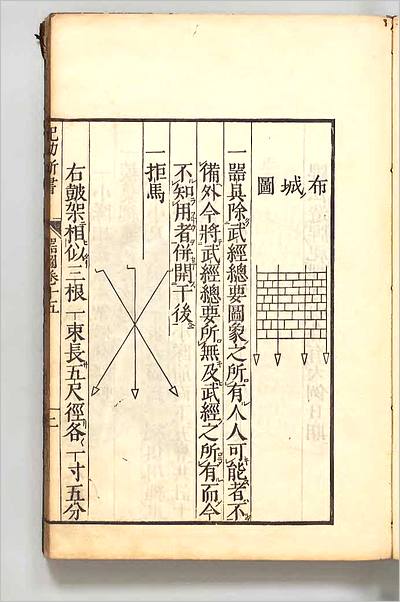 布城圖
一器具除武經總要圖象之所有人人可能者不
備外今將武經總要所無及武經之所有而今
不知用者併開于後
一拒馬
右皷架相似三根一束長五尺徑各一寸五分
紀効新書
器圖卷十五